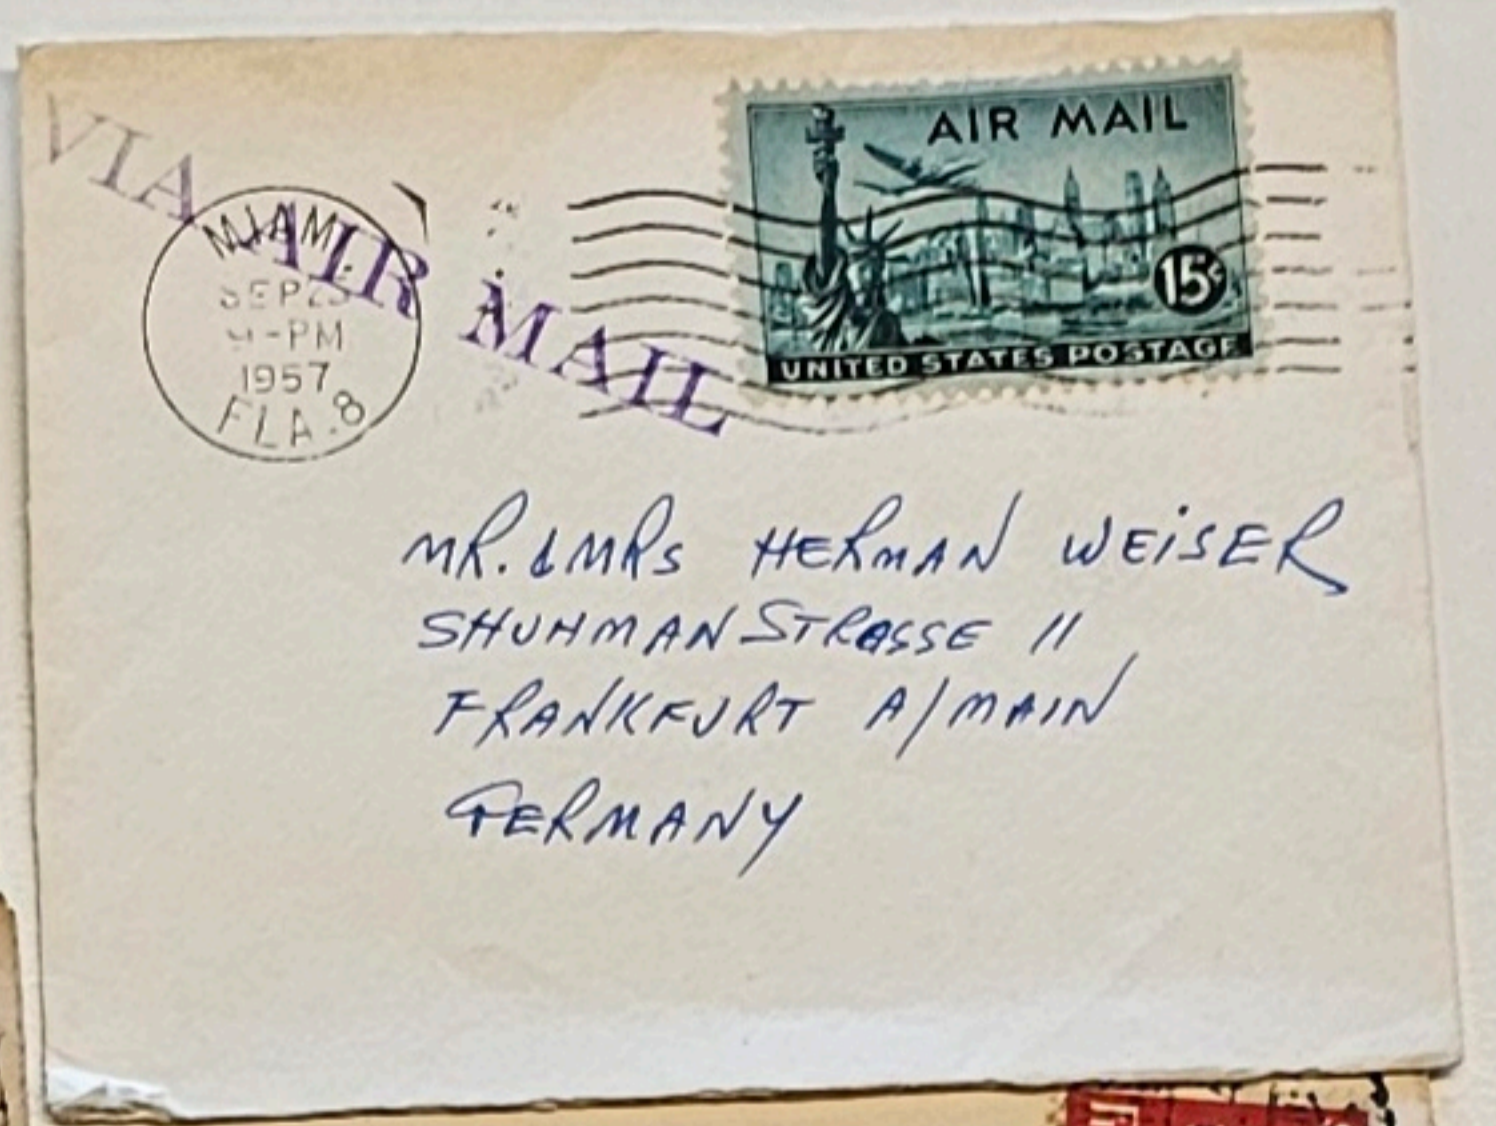 VIA AIR MAIL
MIAMI
SEP
-PM
1957
FLA. 8
AIR MAIL
15¢
UNITED STATES POSTAGE
MR. & MRS HERMAN WEISER
SHUHMAN STRASSE 11
FRANKFURT A/MAIN
GERMANY